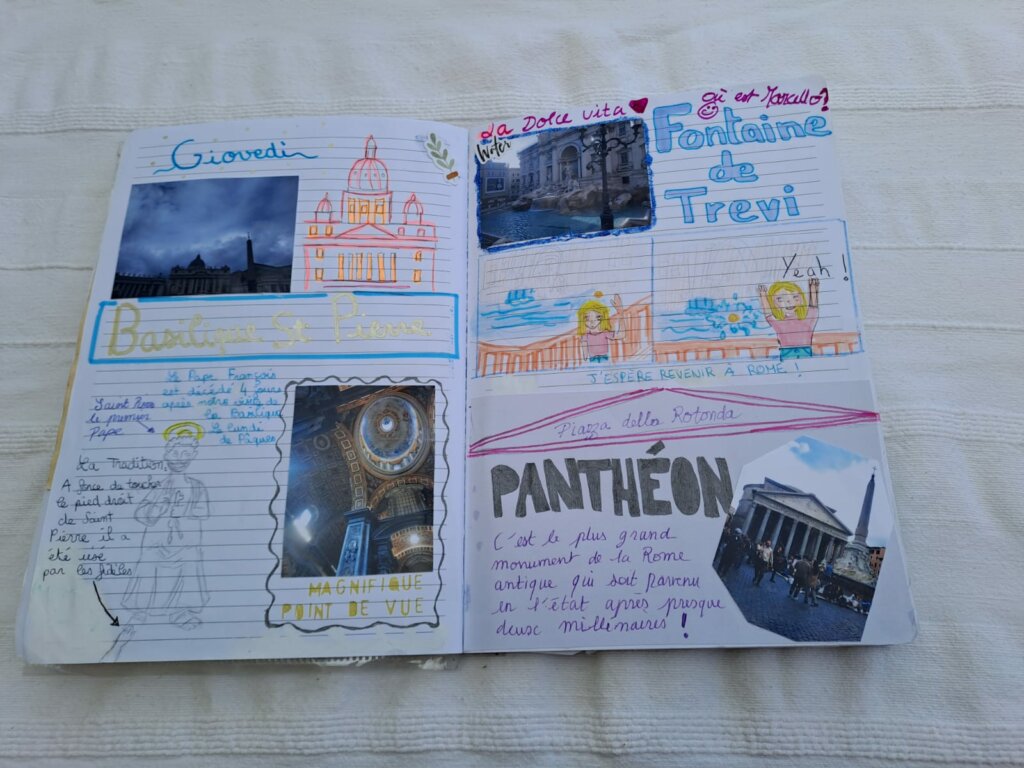 Giovedi
Basilique St Pierre
Le Pape François
est décédé 4 jours
après notre visite de
la Basilique
Le Lundi
de Pâques
Saint Pierre
le premier
Pape
La Tradition
A force de toucher
le pied droit
de Saint
Pierre il a
été usé
par les fidèles
MAGNIFIQUE
POINT DE VUE
LA DOLCE VITA
où est Marcello?
Water
Fontaine
de
Trevi
Yeah !
J'ESPÈRE REVENIR À ROME !
Piazza della Rotonda
PANTHÉON
C'est le plus grand
monument de la Rome
antique qui soit parvenu
en l'état après presque
deux millénaires !